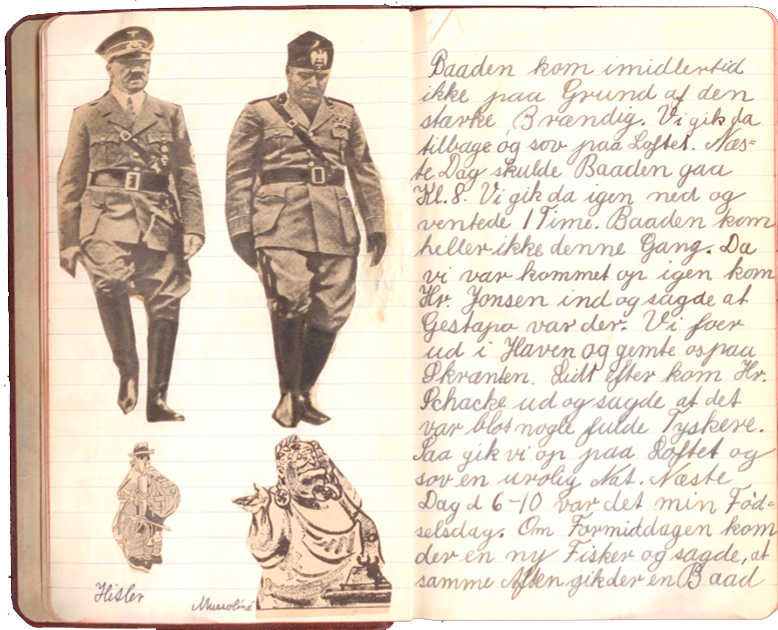 Hisler
Mussolini
Baaden kom imidlertid
ikke paa Grund af den
stærke Brændig. Vi gik da
tilbage og sov paa Loftet. Næs=
te Dag skulde Baaden gaa
Kl. 8. Vi gik da igen ned og
ventede 1 Time. Baaden kom
heller ikke denne Gang. Da
vi var kommet op igen kom
Hr. Jonsen ind og sagde at
Gestapo var der. Vi foer
ud i Haven og gemte os paa
Skrænten. Lidt efter kom Hr.
Schacke ud og sagde at det
var blot nogle fulde Tyskere.
Saa gik vi op paa Loftet og
sov en urolig Nat. Næste
Dag d 6-10 var det min Fød=
selsdag. Om Formiddagen kom
der en ny Fisker og sagde, at
samme Aften gik der en Baad